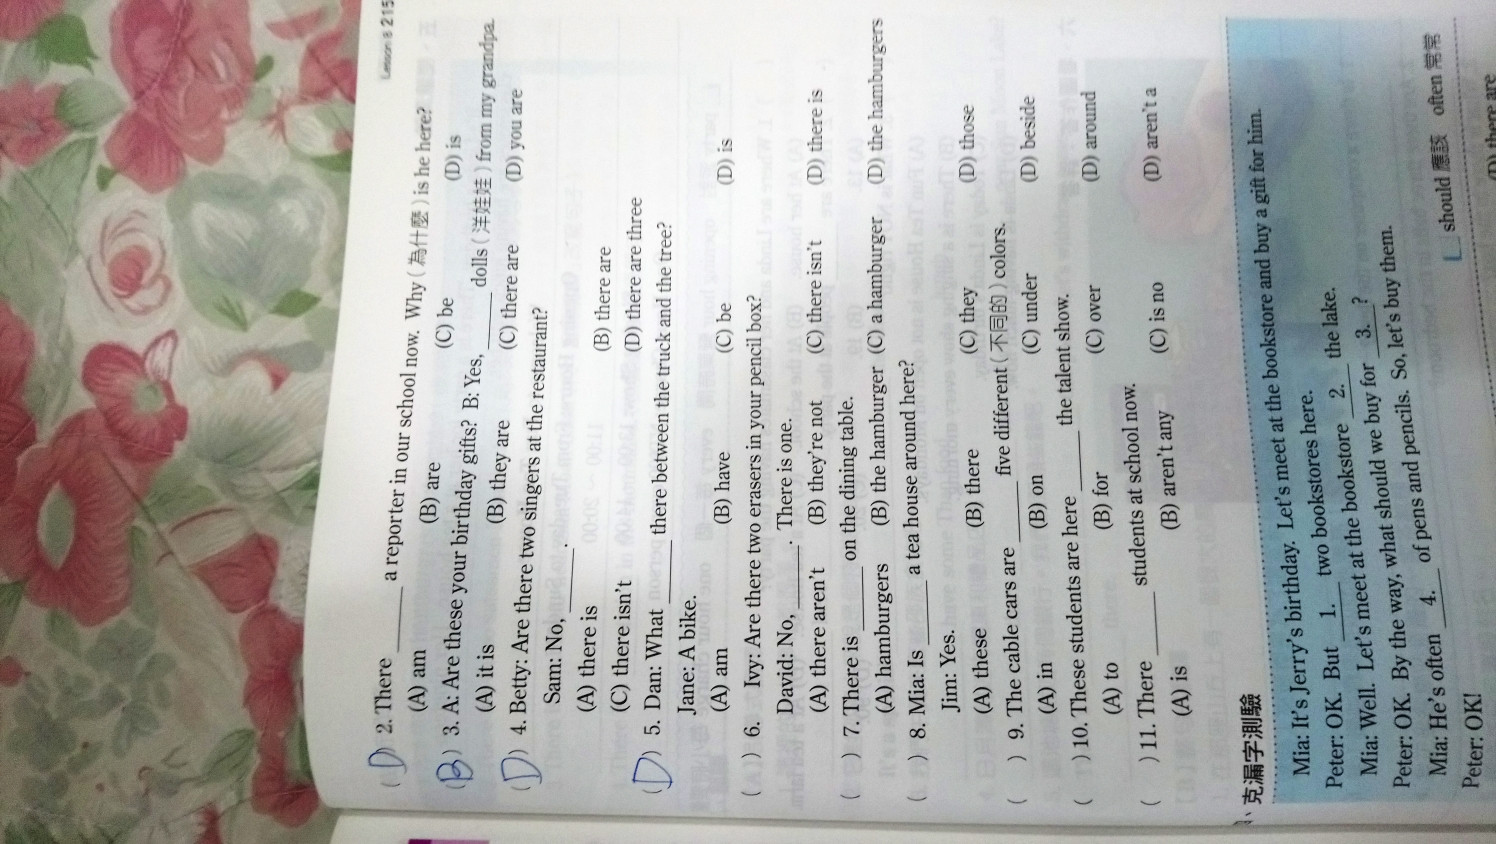 Lesson 8 215
(D) 2. There ______ a reporter in our school now. Why ( 為什麼 ) is he here?
(A) am (B) are (C) be (D) is
(B) 3. A: Are these your birthday gifts? B: Yes, ______ dolls ( 洋娃娃 ) from my grandpa.
(A) it is (B) they are (C) there are (D) you are
(D) 4. Betty: Are there two singers at the restaurant?
Sam: No, ______.
(A) there is (B) there are
(C) there isn't (D) there are three
(D) 5. Dan: What ______ there between the truck and the tree?
Jane: A bike.
(A) am (B) have (C) be (D) is
( ) 6. Ivy: Are there two erasers in your pencil box?
David: No, ______. There is one.
(A) there aren't (B) they're not (C) there isn't (D) there is
( ) 7. There is ______ on the dining table.
(A) hamburgers (B) the hamburger (C) a hamburger (D) the hamburgers
( ) 8. Mia: Is ______ a tea house around here?
Jim: Yes.
(A) these (B) there (C) they (D) those
( ) 9. The cable cars are ______ five different ( 不同的 ) colors.
(A) in (B) on (C) under (D) beside
( ) 10. These students are here ______ the talent show.
(A) to (B) for (C) over (D) around
( ) 11. There ______ students at school now.
(A) is (B) aren't any (C) is no (D) aren't a
、克漏字測驗
Mia: It's Jerry's birthday. Let's meet at the bookstore and buy a gift for him.
Peter: OK. But 1. two bookstores here.
Mia: Well. Let's meet at the bookstore 2. the lake.
Peter: OK. By the way, what should we buy for 3. ?
Mia: He's often 4. of pens and pencils. So, let's buy them.
Peter: OK!
should 應該 often 常常
(D) there are